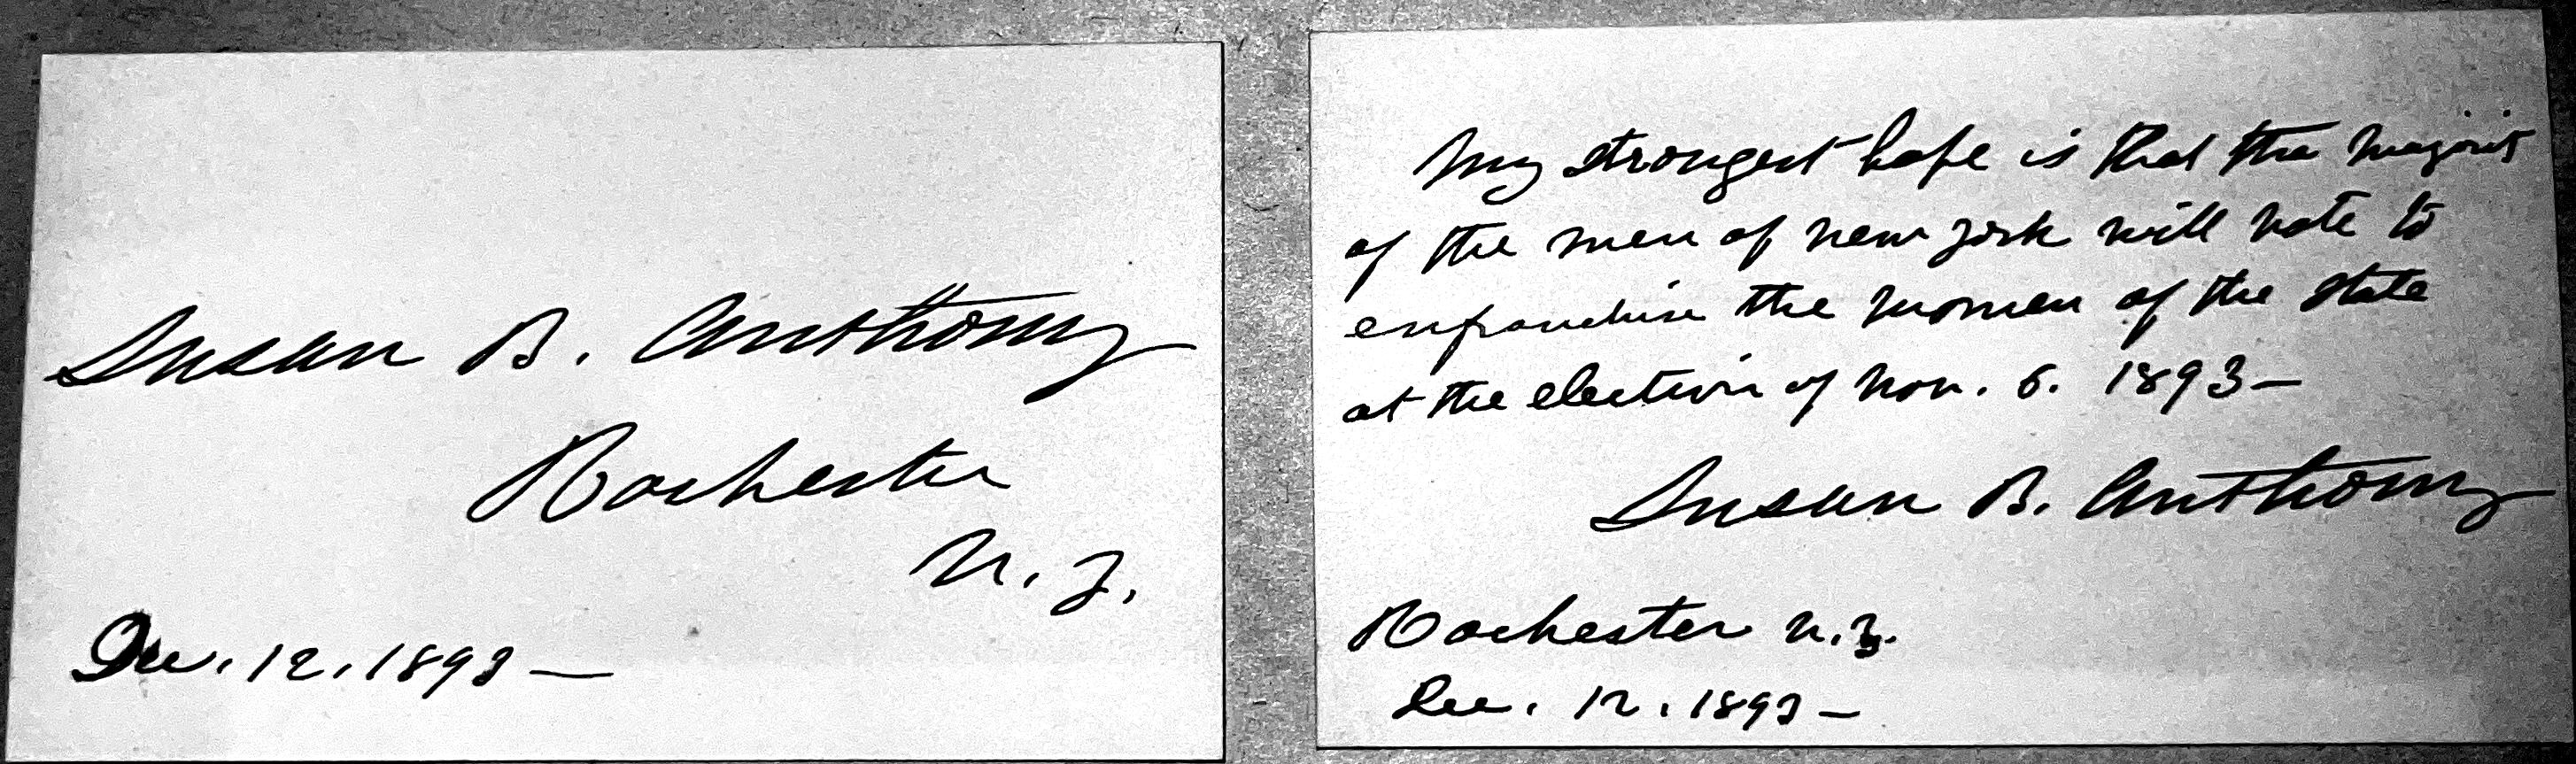 Susan B. Anthony
Rochester
N. Y.
Dec. 12. 1893—
My strongest hope is that the majority
of the men of New York will vote to
enfranchise the women of the state
at the election of Nov. 6. 1893—
Susan B. Anthony
Rochester N.Y.
Dec. 12. 1893—